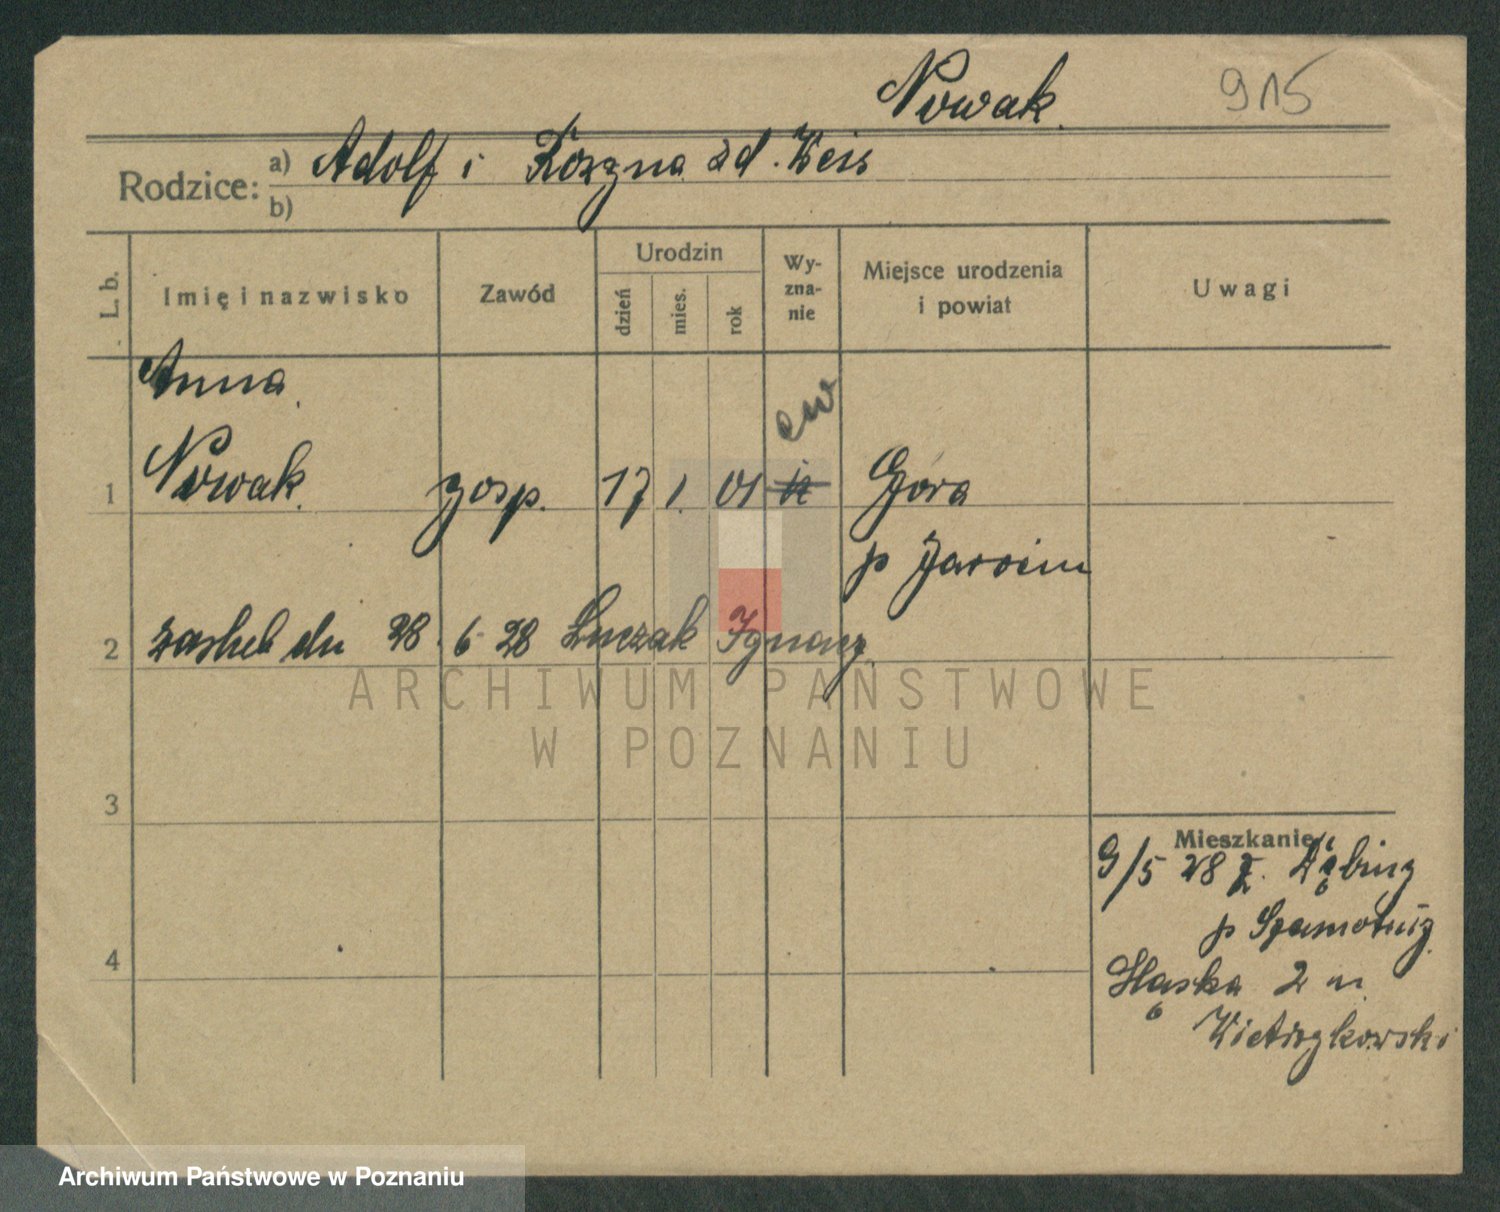 Nowak 915
Rodzice: a) Adolf i Rozyna zd. Weis
b)
L. b.
Imię i nazwisko
Zawód
Urodzin
dzień
mies.
rok
Wy-
zna-
nie
Miejsce urodzenia
i powiat
Uwagi
Anna
ew
1 Nowak gosp. 17 1. 01 Góra
p Jarocin
2 zaślub dn 28. 6 28 Łuczak Ignacy
ARCHIWUM PAŃSTWOWE
W POZNANIU
3
Mieszkanie
9/5 28 z. Dębiny
p Szamotuły
4
Śląska 2 u
Wietrzykowski
Archiwum Państwowe w Poznaniu